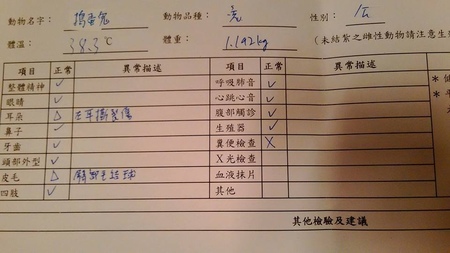 動物名字： 搗蛋鬼 動物品種： 兔 性別： 公
體溫： 38.3℃ 體重： 1.192kg (未結紮之雌性動物請注意生
項目 正常 異常描述 項目 正常 異常描述
整體精神 ✓ 呼吸肺音 ✓
眼睛 ✓ 心跳心音 ✓
耳朵 △ 左耳撕裂傷 腹部觸診 ✓
鼻子 ✓ 生殖器 ✓
牙齒 ✓ 糞便檢查 X
頭部外型 ✓ X光檢查
皮毛 △ 毛結球 血液抹片
四肢 ✓ 其他
其他檢驗及建議